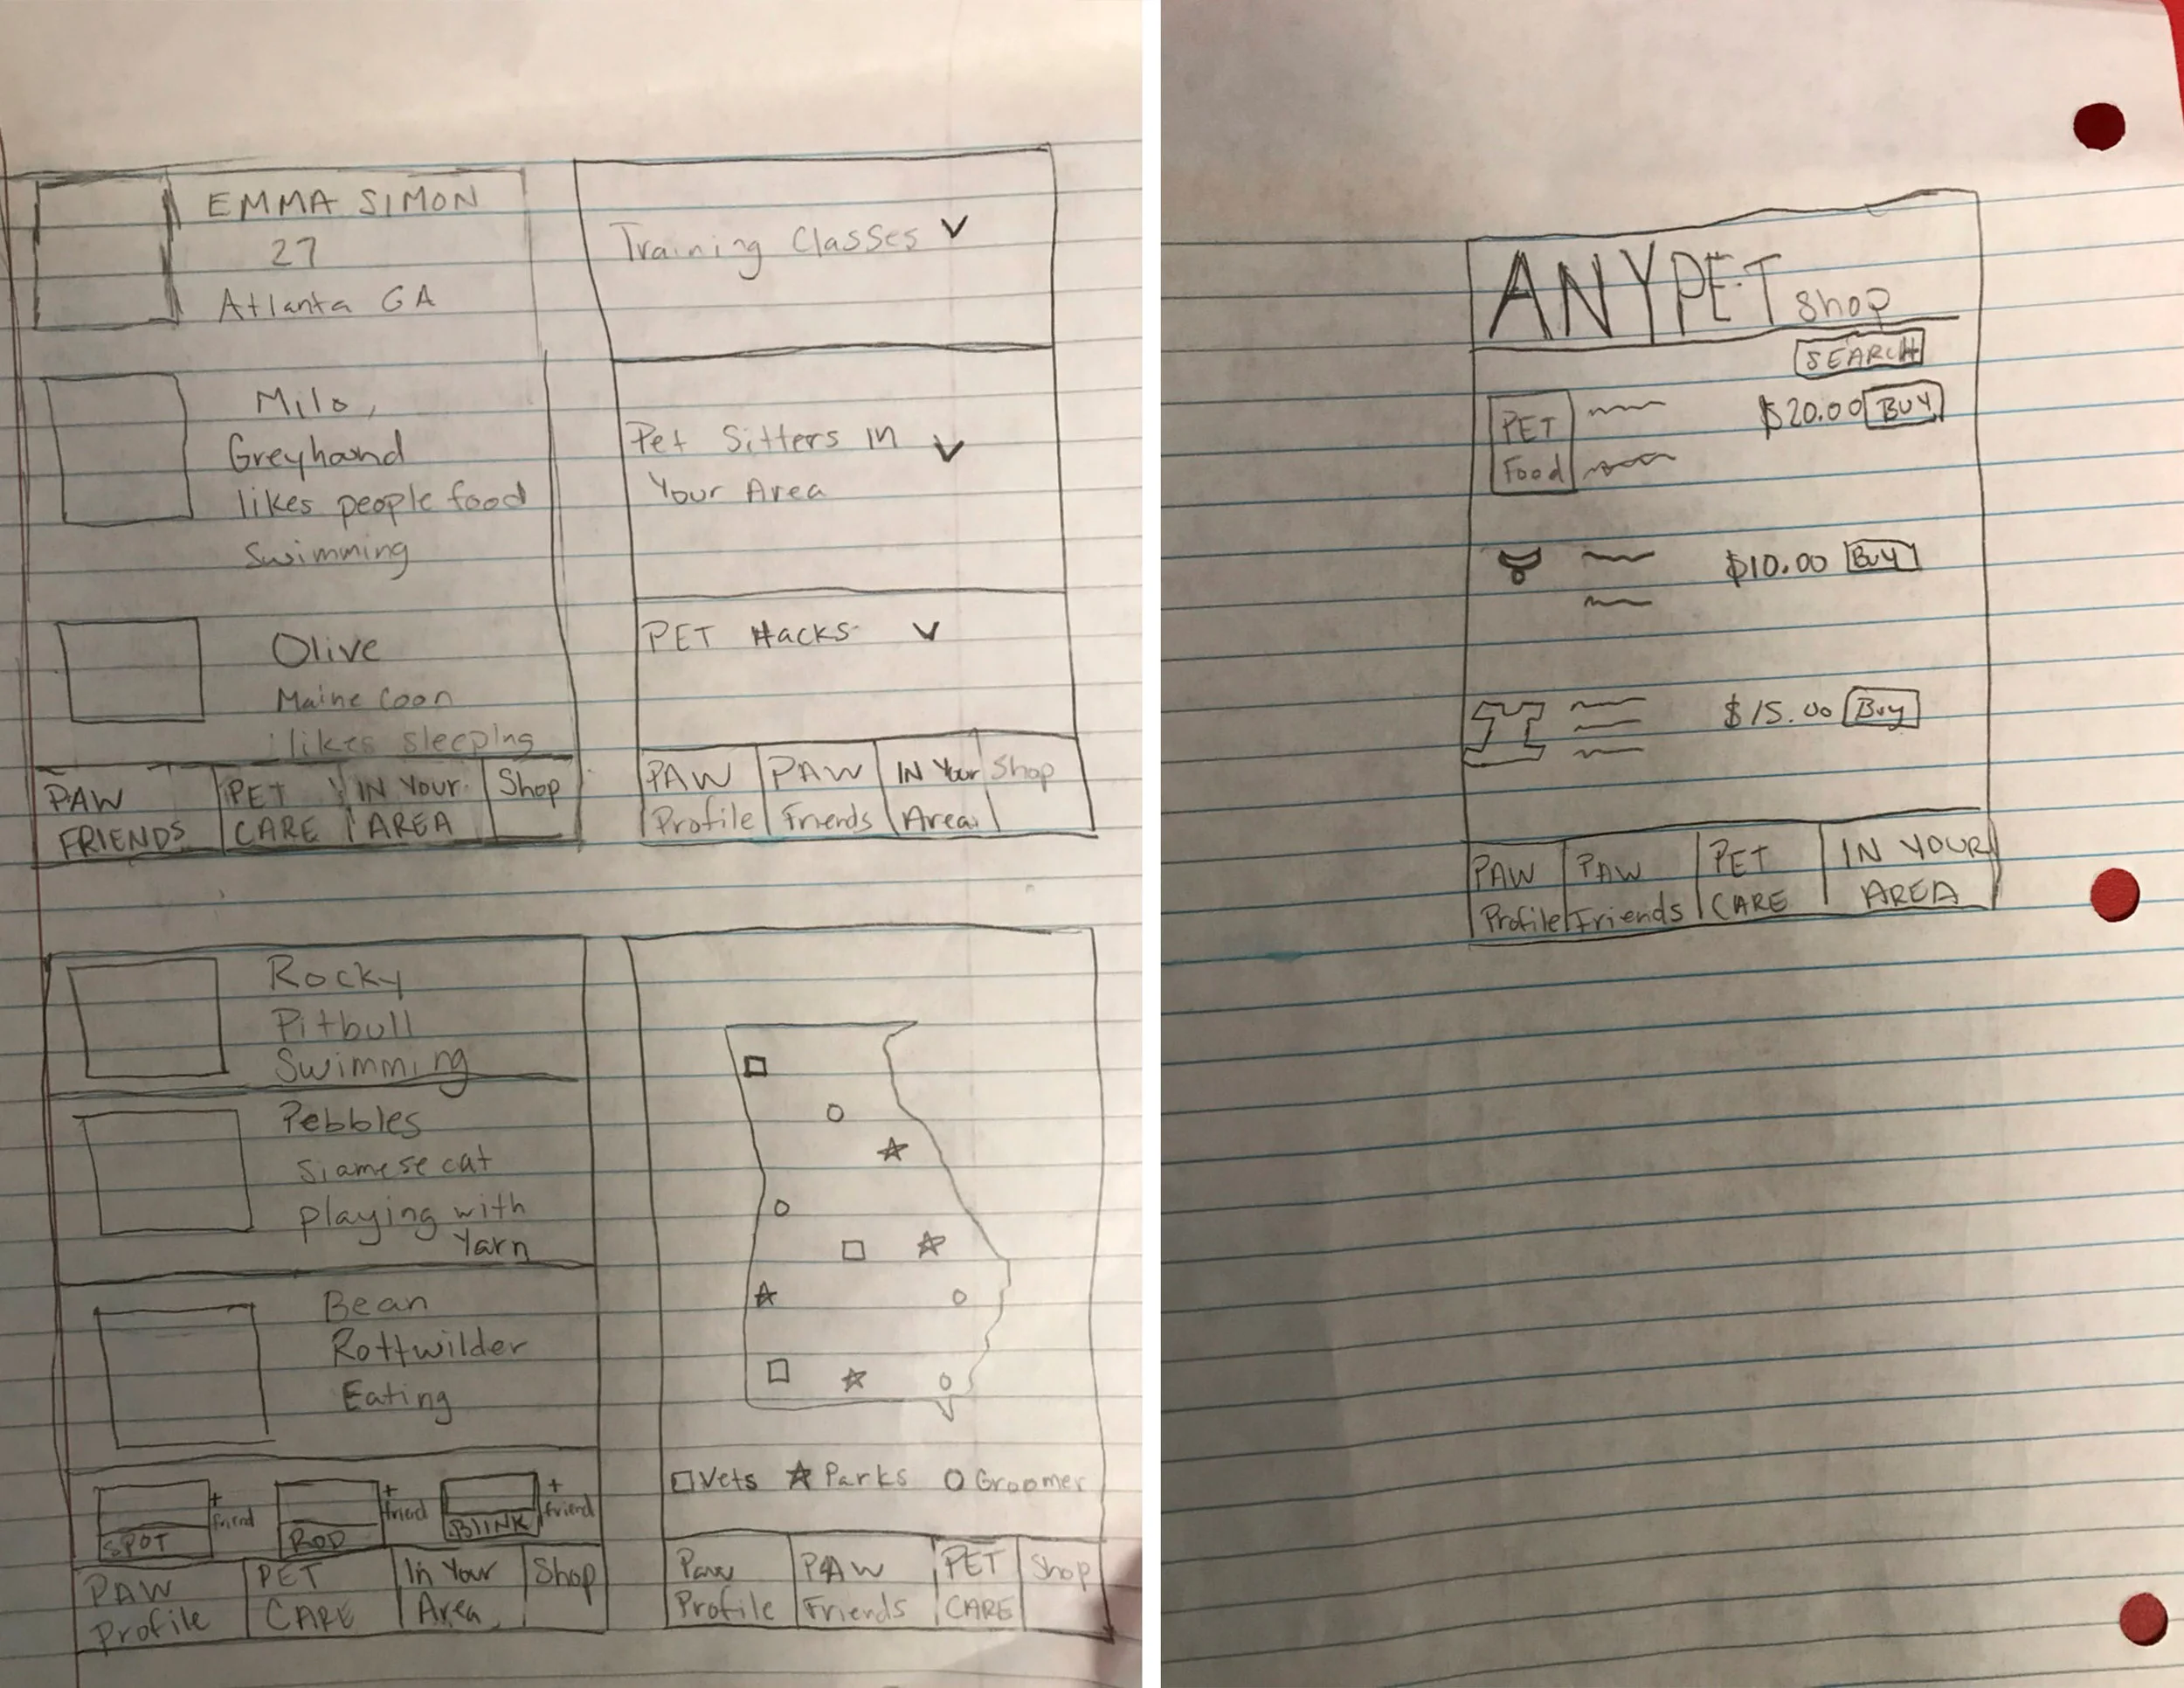 EMMA SIMON
27
Atlanta GA
Milo,
Greyhound
likes people food
Swimming
Olive
Maine Coon
likes sleeping
PAW FRIENDS
PET CARE
IN YOUR AREA
Shop
Training Classes
Pet Sitters in
Your Area
PET Hacks
PAW Profile
PAW Friends
IN Your Area
Shop
Rocky
Pitbull
Swimming
Pebbles
Siamese cat
playing with
Yarn
Bean
Rottwilder
Eating
SPOT
+ friend
ROD
+ friend
BLINK
+ friend
PAW Profile
PET CARE
In Your Area
Shop
Vets Parks Groomer
Paw Profile
PAW Friends
PET CARE
Shop
ANYPET Shop
SEARCH
PET Food
$20.00 BUY
$10.00 Buy
$15.00 Buy
PAW Profile
PAW Friends
PET CARE
IN YOUR AREA